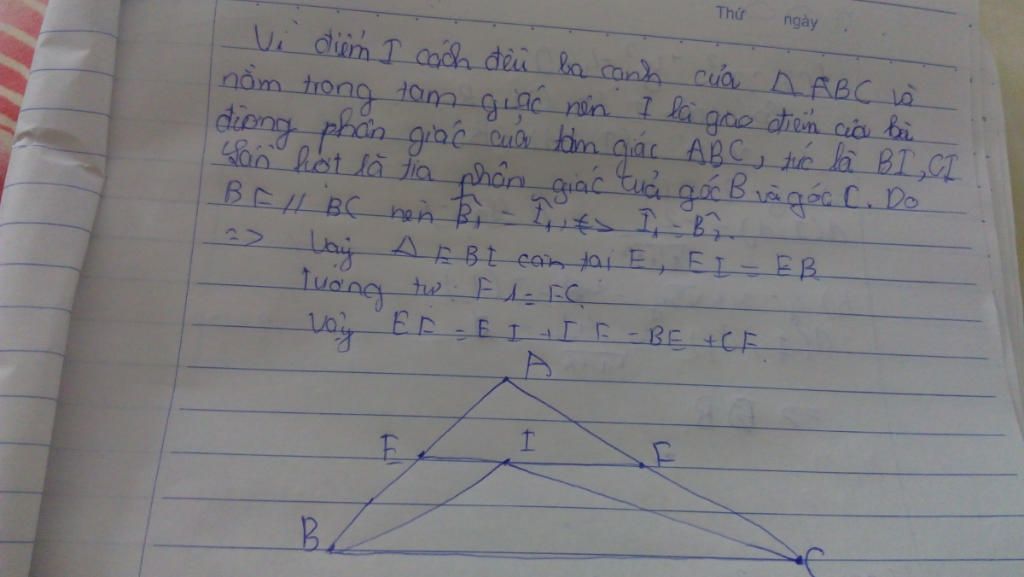 Thứ ngày
Vì điểm I cách đều ba cạnh của Δ ABC và
nằm trong tam giác nên I là giao điểm của ba
đường phân giác của tam giác ABC, tức là BI, CI
lần lượt là tia phân giác của góc B và góc C. Do
BF // BC nên B̂₁ = Î₁, <=> Î₁ = B̂₂.
=> Vậy Δ EBI cân tại E, EI = EB
Tương tự: FI = FC.
Vậy EF = EI + IF = BE + CF.
A
E I F
B C